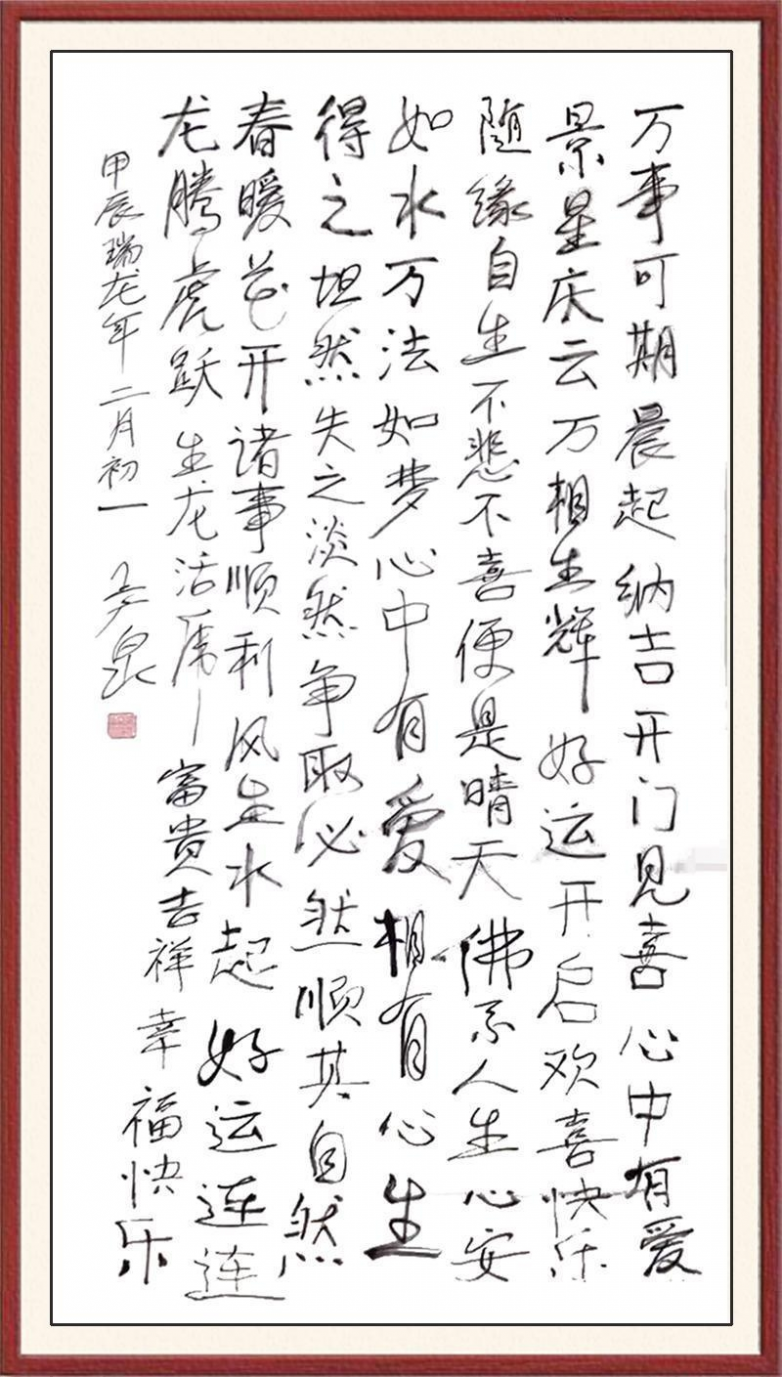 万事可期晨起纳吉开门见喜心中有爱
景星庆云万相生辉好运开启欢喜快乐
随缘自生不悲不喜便是晴天佛系人生心安
如水万法如梦心中有爱相有心生
得之坦然失之淡然争取必然顺其自然
春暖花开诸事顺利风生水起好运连连
龙腾虎跃生龙活虎富贵吉祥幸福快乐
甲辰瑞龙年二月初一 泉